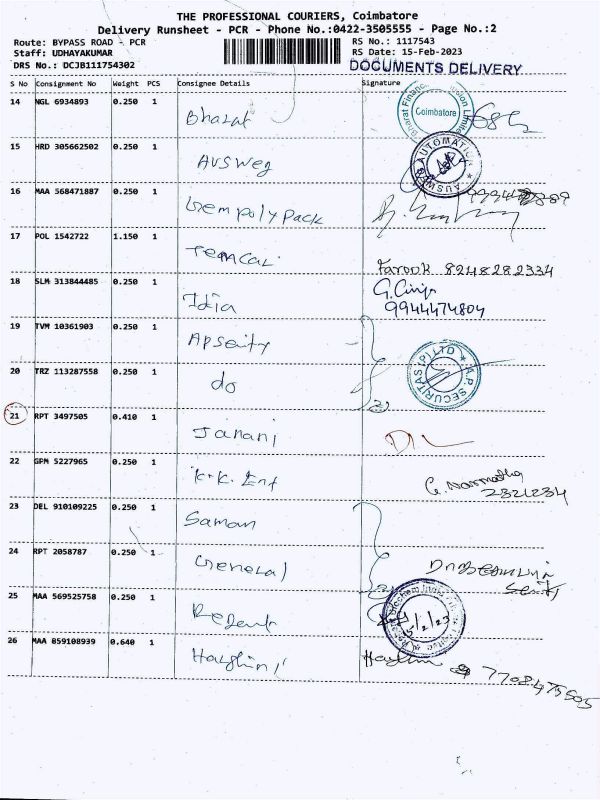 THE PROFESSIONAL COURIERS, Coimbatore
Delivery Runsheet - PCR - Phone No.:0422-3505555 - Page No.:2
Route: BYPASS ROAD - PCR
RS No.: 1117543
Staff: UDHAYAKUMAR
RS Date: 15-Feb-2023
DRS No.: DCJB111754302
DOCUMENTS DELIVERY
S No Consignment No Weight PCS Consignee Details Signature
14 NGL 6934893 0.250 1 Bharat
Coimbatore
15 HRD 305662502 0.250 1 Ausweg
AUSWEG AUTOMATION
16 MAA 568471887 0.250 1 Gem poly pack
17 POL 1542722 1.150 1
Farook 8248282334
18 SLM 313844485 0.250 1 Idia
9944474804
19 TVM 10361903 0.250 1
20 TRZ 113287558 0.250 1 do
A.P. SECURITAS (P) LTD
21 RPT 3497505 0.410 1 Janani
22 GPM 5227965 0.250 1 K.K. Ent
G. Narmatha
2321234
23 DEL 910109225 0.250 1 Saman
24 RPT 2058787 0.250 1 General
25 MAA 569525758 0.250 1
15/2/23
26 MAA 059108939 0.640 1
7708475505